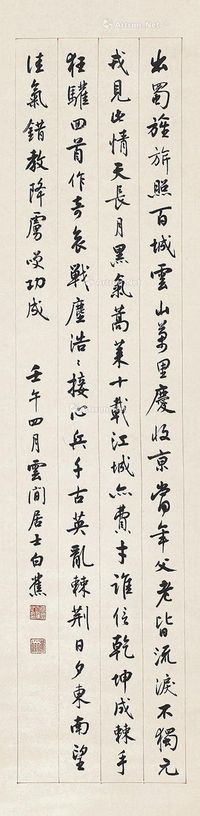 出蜀旌旂照百城雲山萬里慶收京當年父老皆流淚不獨元
戎見此情天長月黑氣蒿萊十載江城亦費才誰信乾坤成棘手
狂驩四首作奇哀戰塵浩〻接心兵千古英亂棘荆日夕東南望
佳氣錯教降虜唤功成
壬午四月雲間居士白蕉